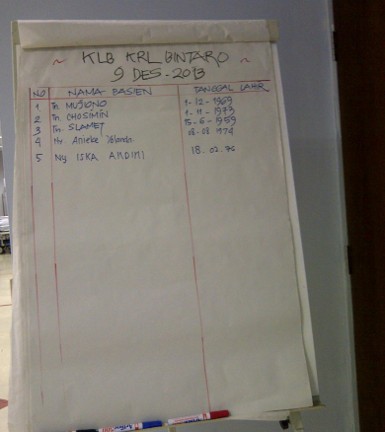 ~ KLB KRL BINTARO ~
9 DES - 2013
NO NAMA PASIEN TANGGAL LAHIR
1 Tn. MUJIONO 1 - 12 - 1969
2 Tn. CHOSIMIN 1 - 11 - 1973
3 Tn. SLAMET 5 - 6 - 1959
4 Anieke
5 Ny ISKA ANDINI 18. 02. 76